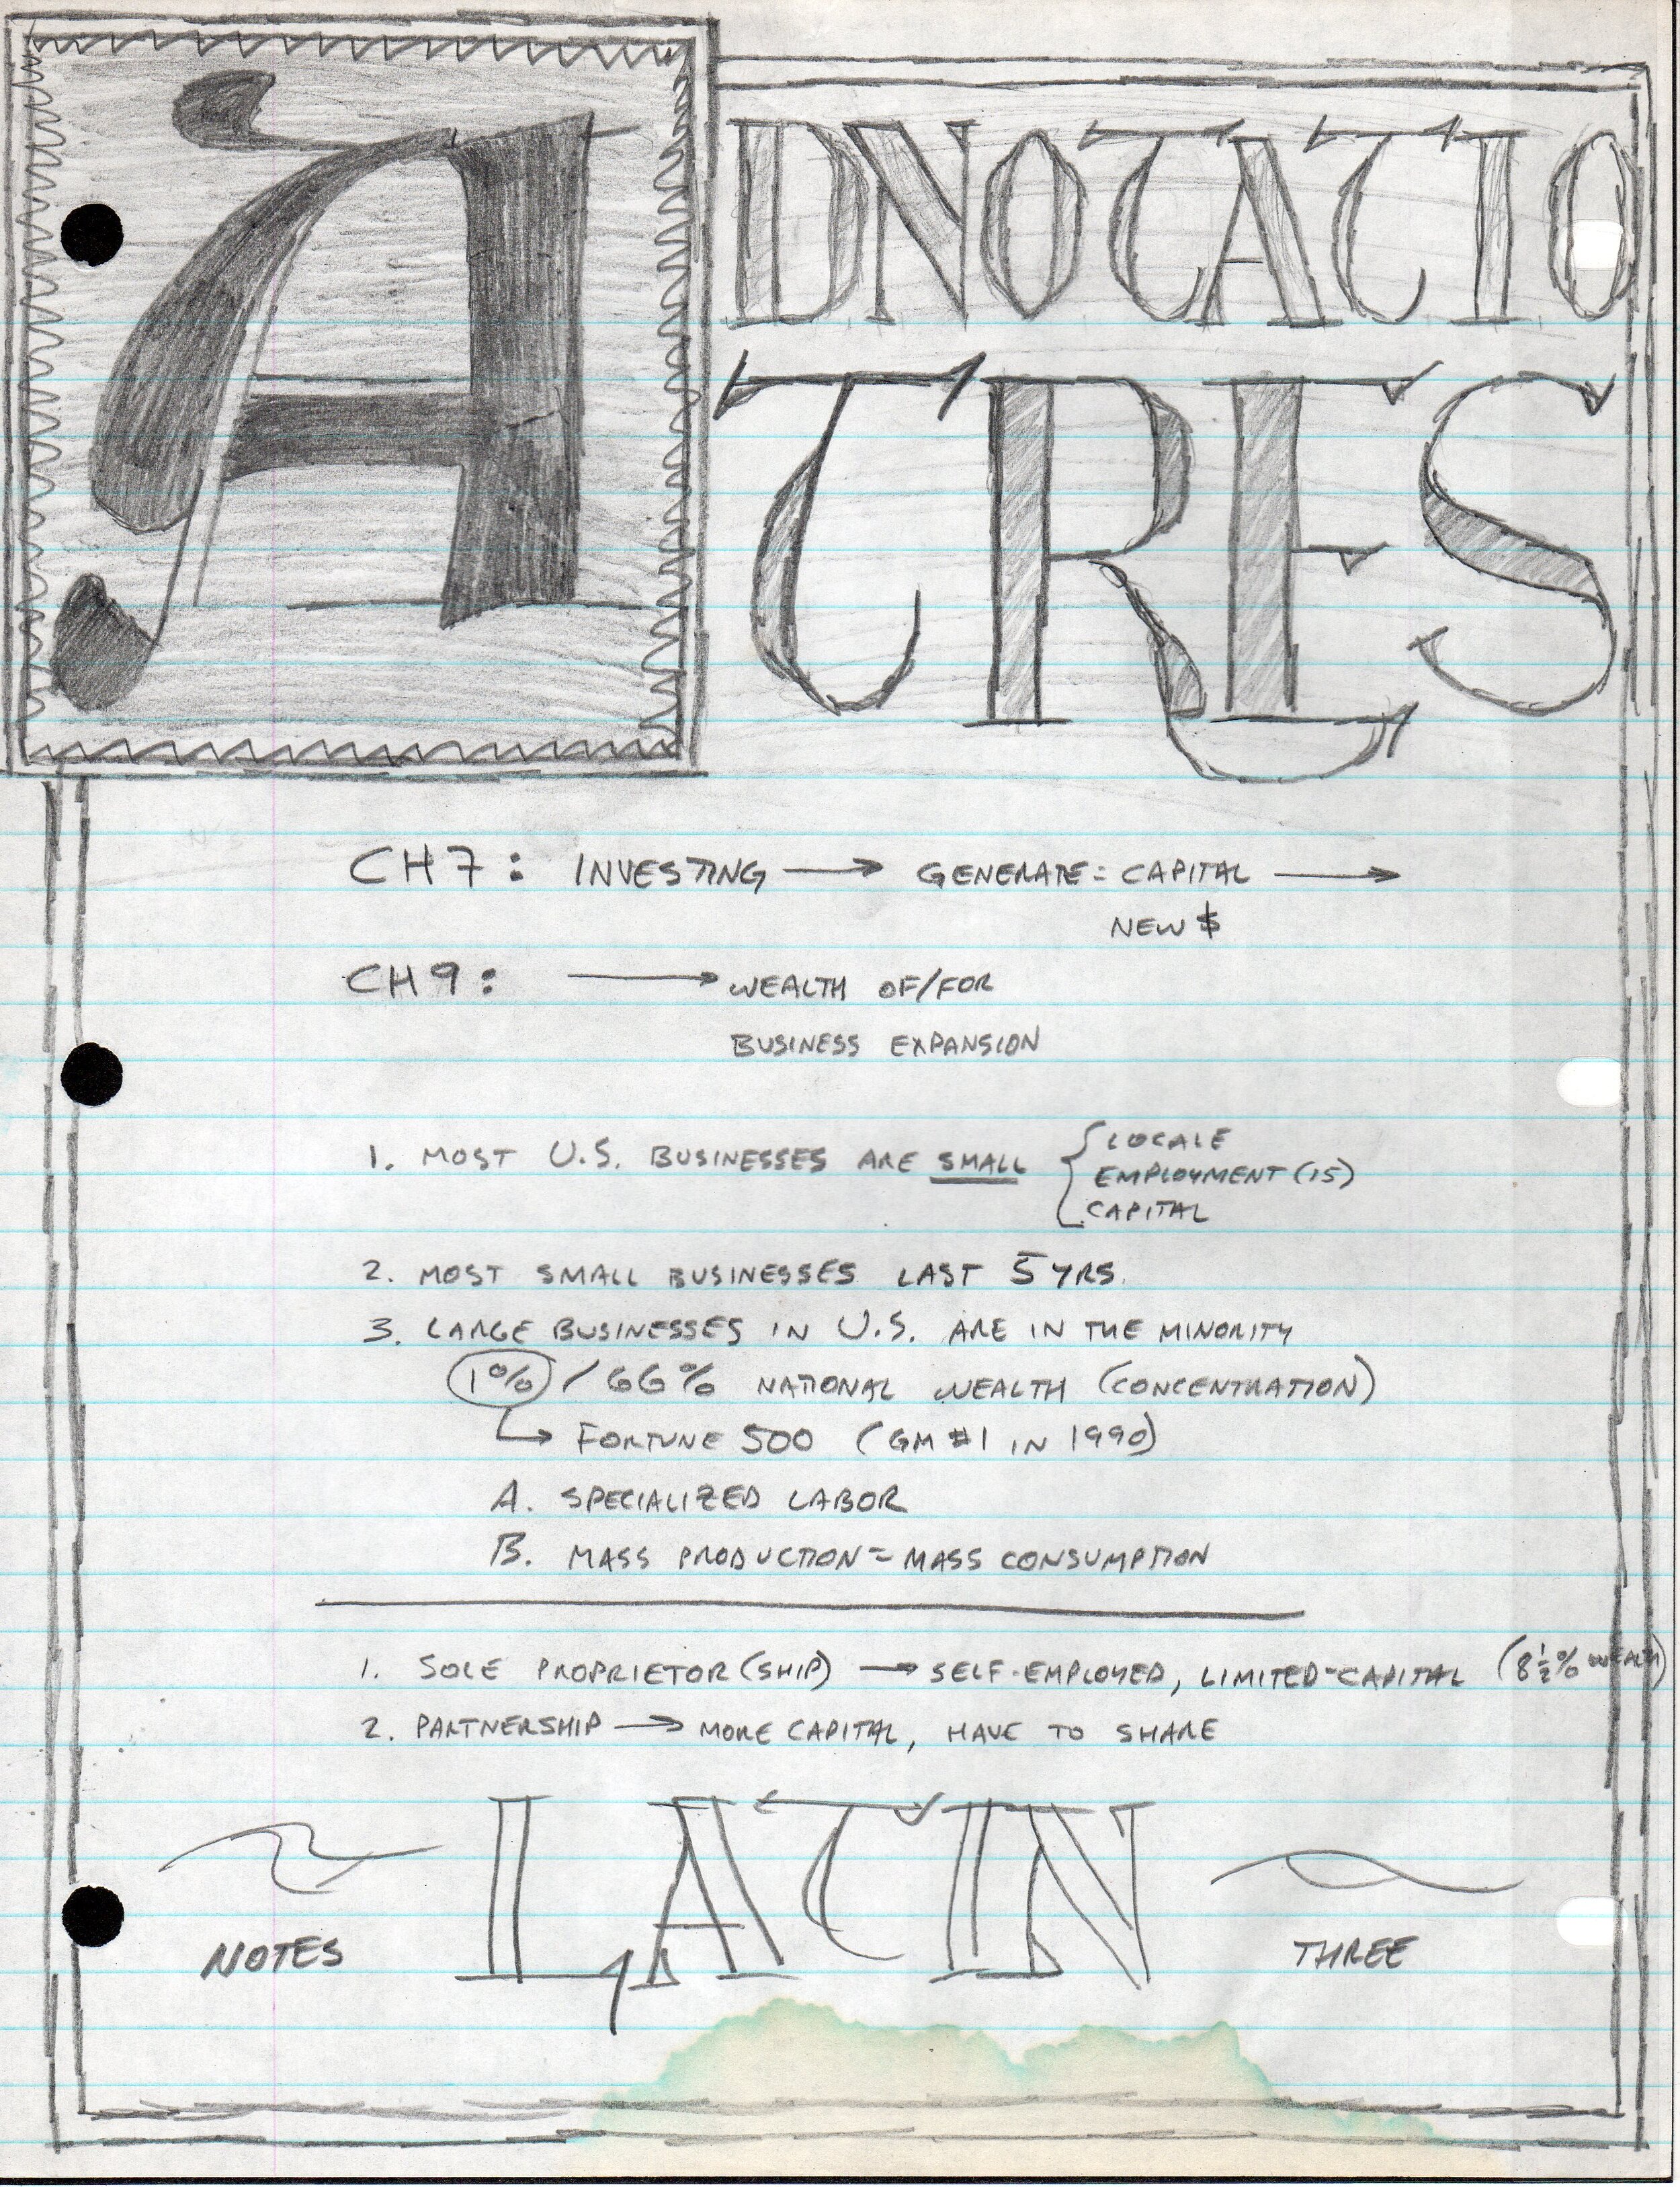 ADNOTATIO
TRES
CH 7: INVESTING → GENERATE = CAPITAL →
NEW $
CH 9: → WEALTH OF/FOR
BUSINESS EXPANSION
1. MOST U.S. BUSINESSES ARE SMALL { LOCALE
EMPLOYMENT (15)
CAPITAL
2. MOST SMALL BUSINESSES LAST 5 YRS.
3. LARGE BUSINESSES IN U.S. ARE IN THE MINORITY
1% / 66% NATIONAL WEALTH (CONCENTRATION)
↳ FORTUNE 500 (GM #1 IN 1990)
A. SPECIALIZED LABOR
B. MASS PRODUCTION = MASS CONSUMPTION
1. SOLE PROPRIETOR(SHIP) → SELF-EMPLOYED, LIMITED-CAPITAL (8½% WEALTH)
2. PARTNERSHIP → MORE CAPITAL, HAVE TO SHARE
NOTES LATIN THREE